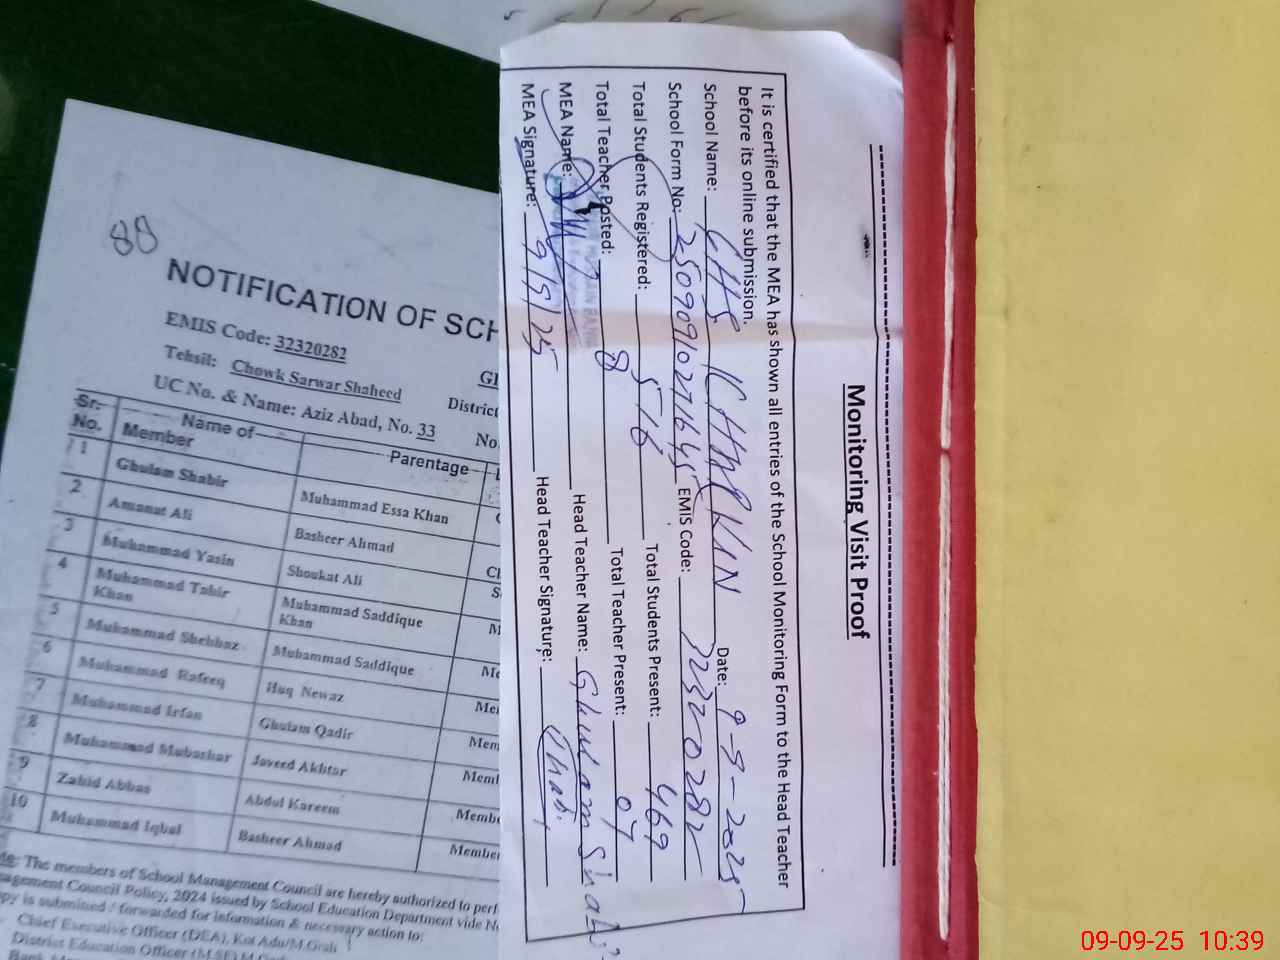 Monitoring Visit Proof
It is certified that the MEA has shown all entries of the School Monitoring Form to the Head Teacher
before its online submission.
School Name: GHS KHARKIN Date: 9-9-2025
School Form No: 25090910271645 EMIS Code: 32320282
Total Students Registered: 516 Total Students Present: 469
Total Teacher Posted: 8 Total Teacher Present: 07
MEA Name: Head Teacher Name: Ghulam Shabir
MEA Signature: 9/9/25 Head Teacher Signature:
88
NOTIFICATION OF SCH
EMIS Code: 32320282
Tehsil: Chowk Sarwar Shaheed District
UC No. & Name: Aziz Abad, No. 33 No
Sr. No. Name of Member Parentage
1 Ghulam Shabir Muhammad Essa Khan
2 Amanat Ali Basheer Ahmad
3 Muhammad Yasin Shoukat Ali
4 Muhammad Tahir Khan Muhammad Saddique Khan
5 Muhammad Shehbaz Muhammad Saddique
6 Muhammad Rafeeq Haq Newaz
7 Muhammad Irfan Ghulam Qadir
8 Muhammad Mubashar Javeed Akhtar
9 Zahid Abbas Abdul Kareem
10 Muhammad Iqbal Basheer Ahmad
The members of School Management Council are hereby authorized to perf
agement Council Policy, 2024 issued by School Education Department vide N
py is submitted / forwarded for information & necessary action to:
Chief Executive Officer (DEA), Kot Adu/M.Grah
District Education Officer
09-09-25 10:39